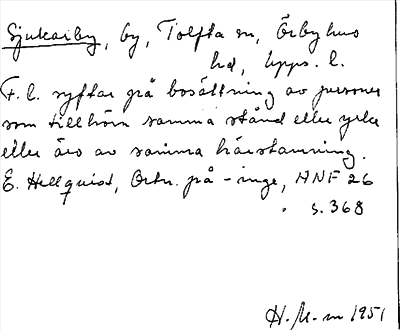 Sjukarby, by, Tolfta sn, Örbyhus
hd, Upps. l.
F. l. syftar på bosättning av personer
som tillhöra samma stånd eller yrke
eller äro av samma härstamning.
E. Hellquist, Ortn. på -inge, ANF 26
s. 368
H. M-m 1951